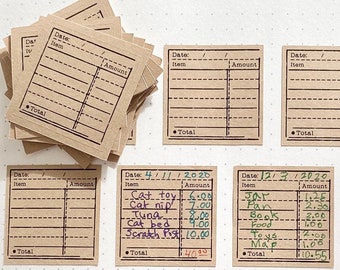 Date: / /
Item Amount
•Total
Date: / /
Item Amount
•Total
Date: /
Item
•Total
Date: / /
Item Amount
•Total
Date: 4/11/2020
Item Amount
Cat toy 6.00
Cat nip 7.00
Tuna 8.00
Cat bed 9.00
Scratch Pst 10.00
•Total 40.00
Date: 12/7/2020
Item Amount
Jar 1.25
Pan
Book 2.00
Food 1.00
Toys 2.00
Map 1.00
•Total 10.55